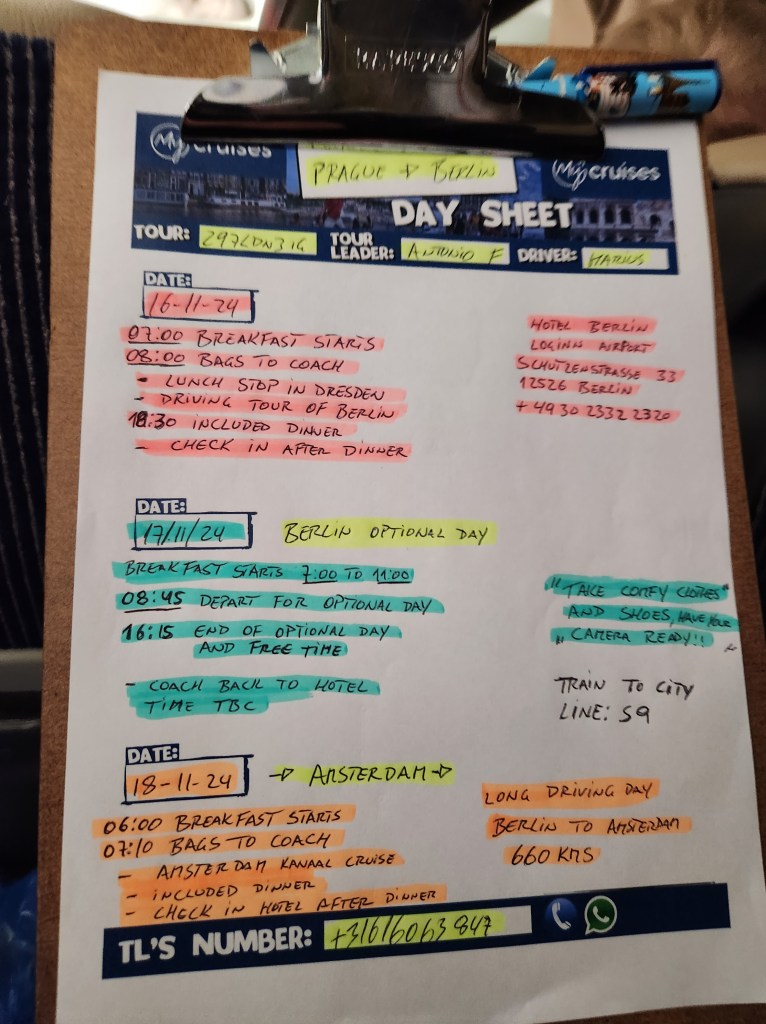 My cruises
PRAGUE → BERLIN
My cruises
DAY SHEET
TOUR: 297LDN31G
TOUR LEADER: ANTONIO F
DRIVER: MARIUS
DATE:
16-11-24
07:00 BREAKFAST STARTS
08:00 BAGS TO COACH
- LUNCH STOP IN DRESDEN
- DRIVING TOUR OF BERLIN
18:30 INCLUDED DINNER
- CHECK IN AFTER DINNER
HOTEL BERLIN
LOGINN AIRPORT
SCHUTZENSTRASSE 33
12526 BERLIN
+49 30 2332 2320
DATE:
17/11/24
BERLIN OPTIONAL DAY
BREAKFAST STARTS 7:00 TO 11:00
08:45 DEPART FOR OPTIONAL DAY
16:15 END OF OPTIONAL DAY
AND FREE TIME
- COACH BACK TO HOTEL
TIME TBC
"TAKE COMFY CLOTHES"
AND SHOES, HAVE YOUR
" CAMERA READY!! "
TRAIN TO CITY
LINE: S9
DATE:
18-11-24
→ AMSTERDAM →
06:00 BREAKFAST STARTS
07:10 BAGS TO COACH
- AMSTERDAM KANAAL CRUISE
- INCLUDED DINNER
- CHECK IN HOTEL AFTER DINNER
LONG DRIVING DAY
BERLIN TO AMSTERDAM
660 KMS
TL'S NUMBER: +31616063847